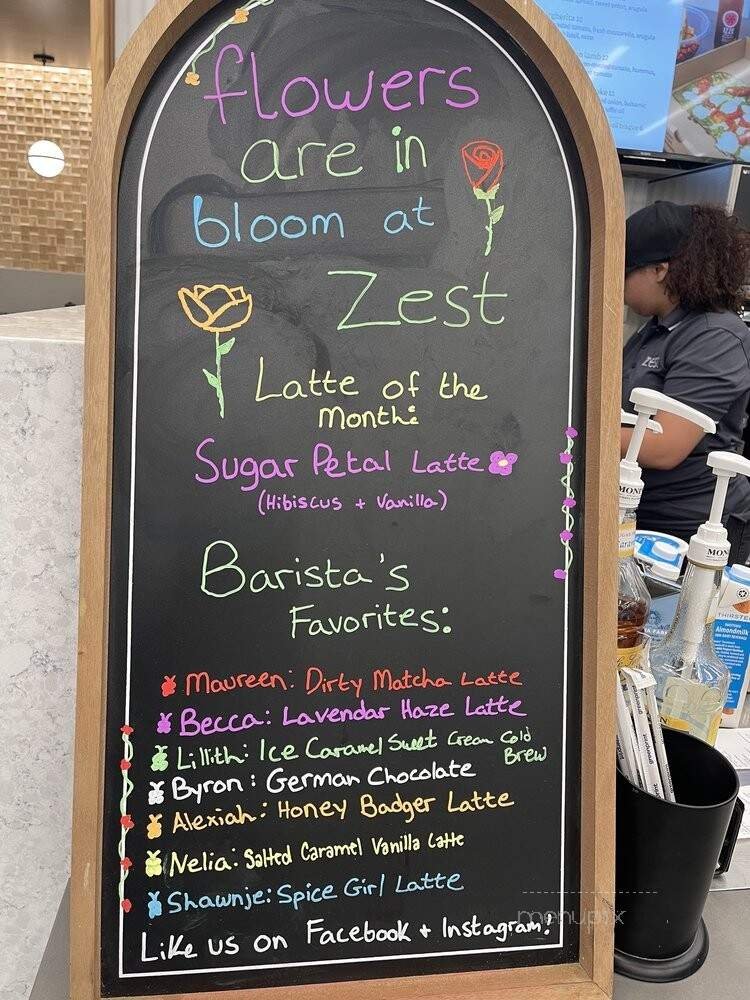 flowers
are in
bloom at
Zest
Latte of the
Month:
Sugar Petal Latte
(Hibiscus + Vanilla)
Barista's
Favorites:
Maureen: Dirty Matcha Latte
Becca: Lavendar Haze Latte
Lillith: Ice Caramel Sweet Cream Cold
Brew
Byron: German Chocolate
Alexiah: Honey Badger Latte
Nelia: Salted Caramel Vanilla Latte
Shawnje: Spice Girl Latte
Like us on Facebook + Instagram!
menupix
zest
MONIN
Almondmilk